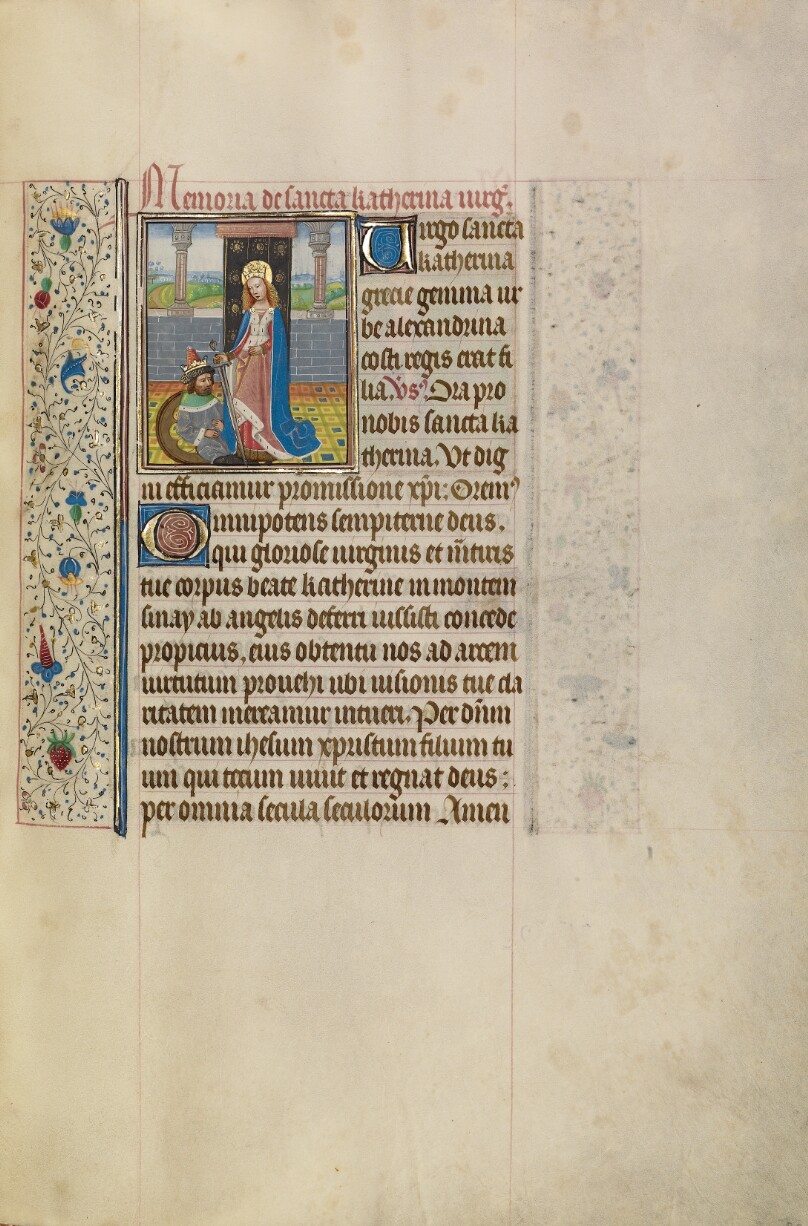 Memoria de sancta katherina uirg̃.
Uirgo sancta
katherina
grecie gemma ur
be alexandrina
costi regis erat fi
lia. Vs̾. Ora pro
nobis sancta ka
therina. Vt dig
ni efficiamur promissione xp̃i: Orem̾
Omnipotens sempiterne deus.
qui gloriose uirginis et m̃tiris
tue corpus beate katherine in montem
sinay ab angelis deferri iussisti concede
propicius. eius obtentu nos ad arcem
uirtutum prouehi ubi uisionis tue cla
ritatem mereamur intueri. Per dñm
nostrum ihesum xpristum filium tu
um qui tecum uiuit et regnat deus:
per omnia secula seculorum Amen